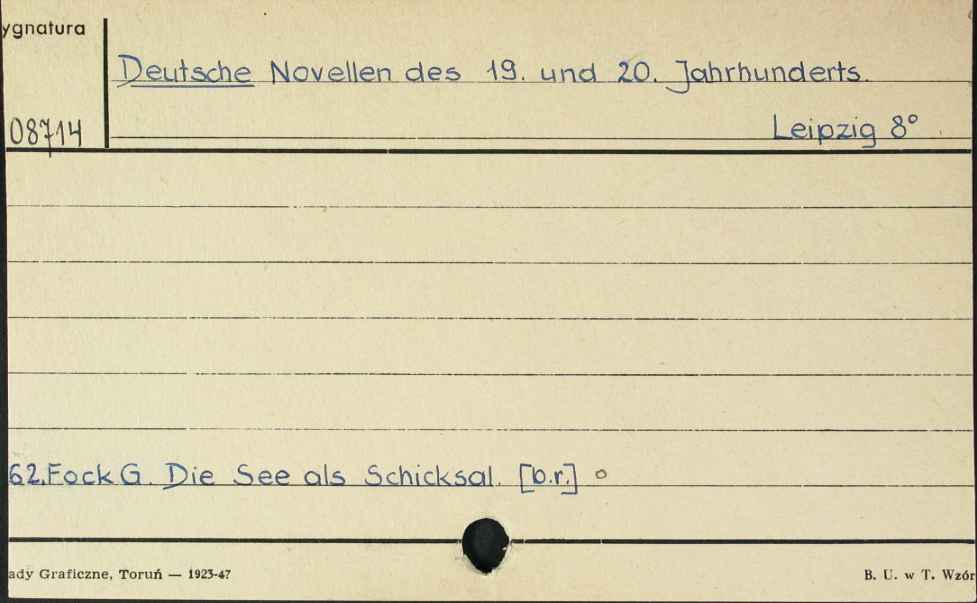 ygnatura
Deutsche Novellen des 19. und 20. Jahrhunderts.
08714
Leipzig 8°
62. Fock G. Die See als Schicksal. [b.r.] o
ady Graficzne, Toruń — 1923-47
B. U. w T. Wzór